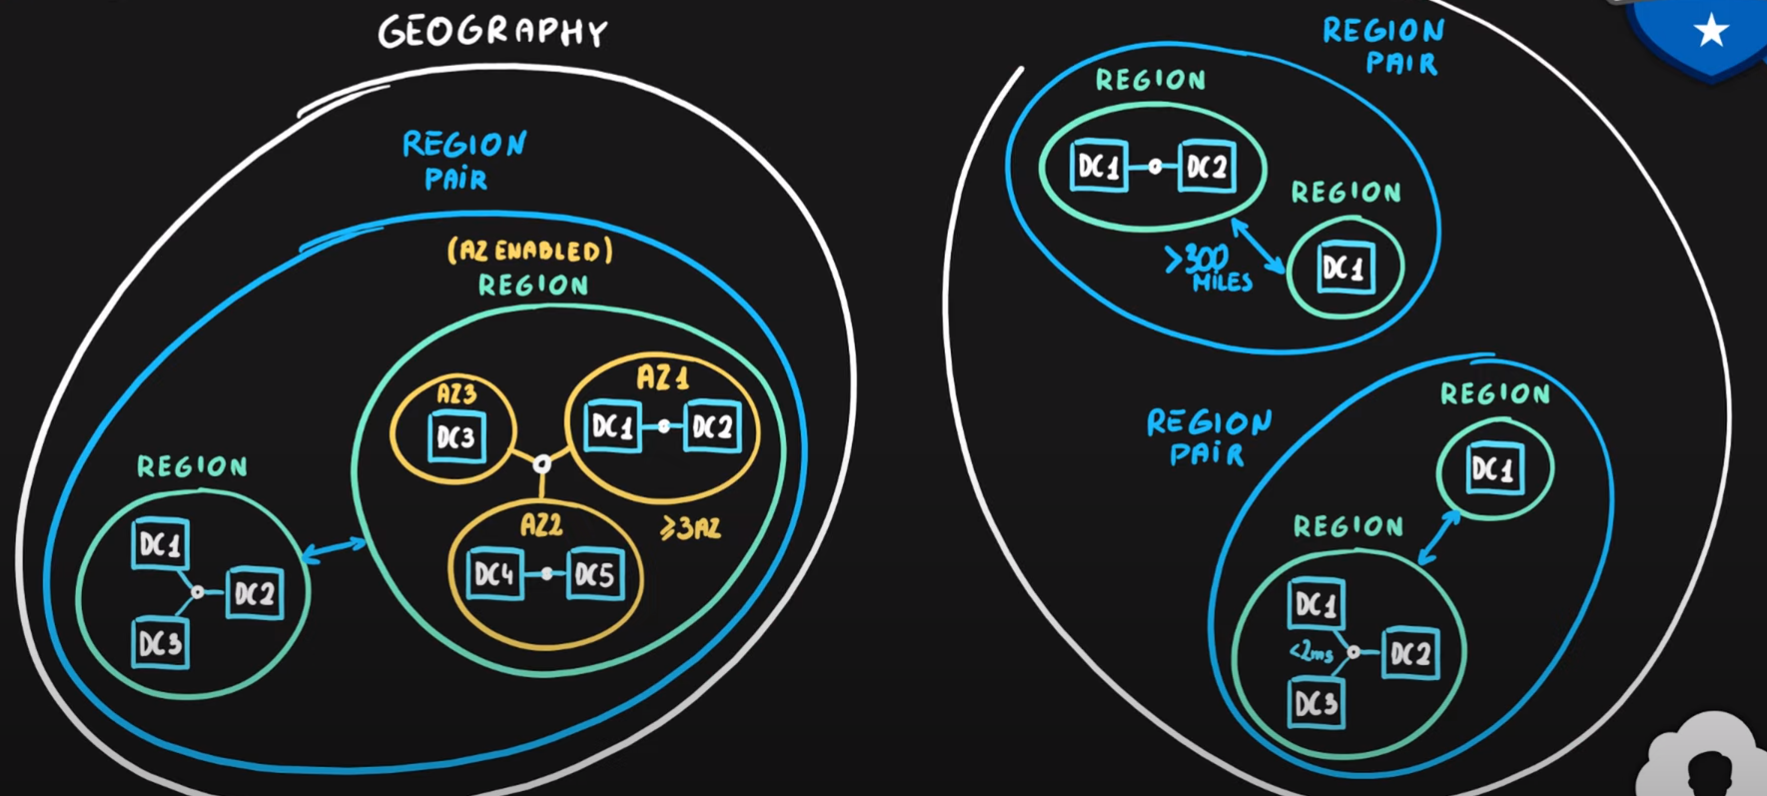 GEOGRAPHY
REGION
PAIR
(AZ ENABLED)
REGION
AZ3
DC3
AZ1
DC1
DC2
AZ2
DC4
DC5
≥3AZ
REGION
DC1
DC2
DC3
REGION
PAIR
REGION
DC1
DC2
REGION
DC1
>300
MILES
REGION
PAIR
REGION
DC1
REGION
DC1
<2ms
DC2
DC3